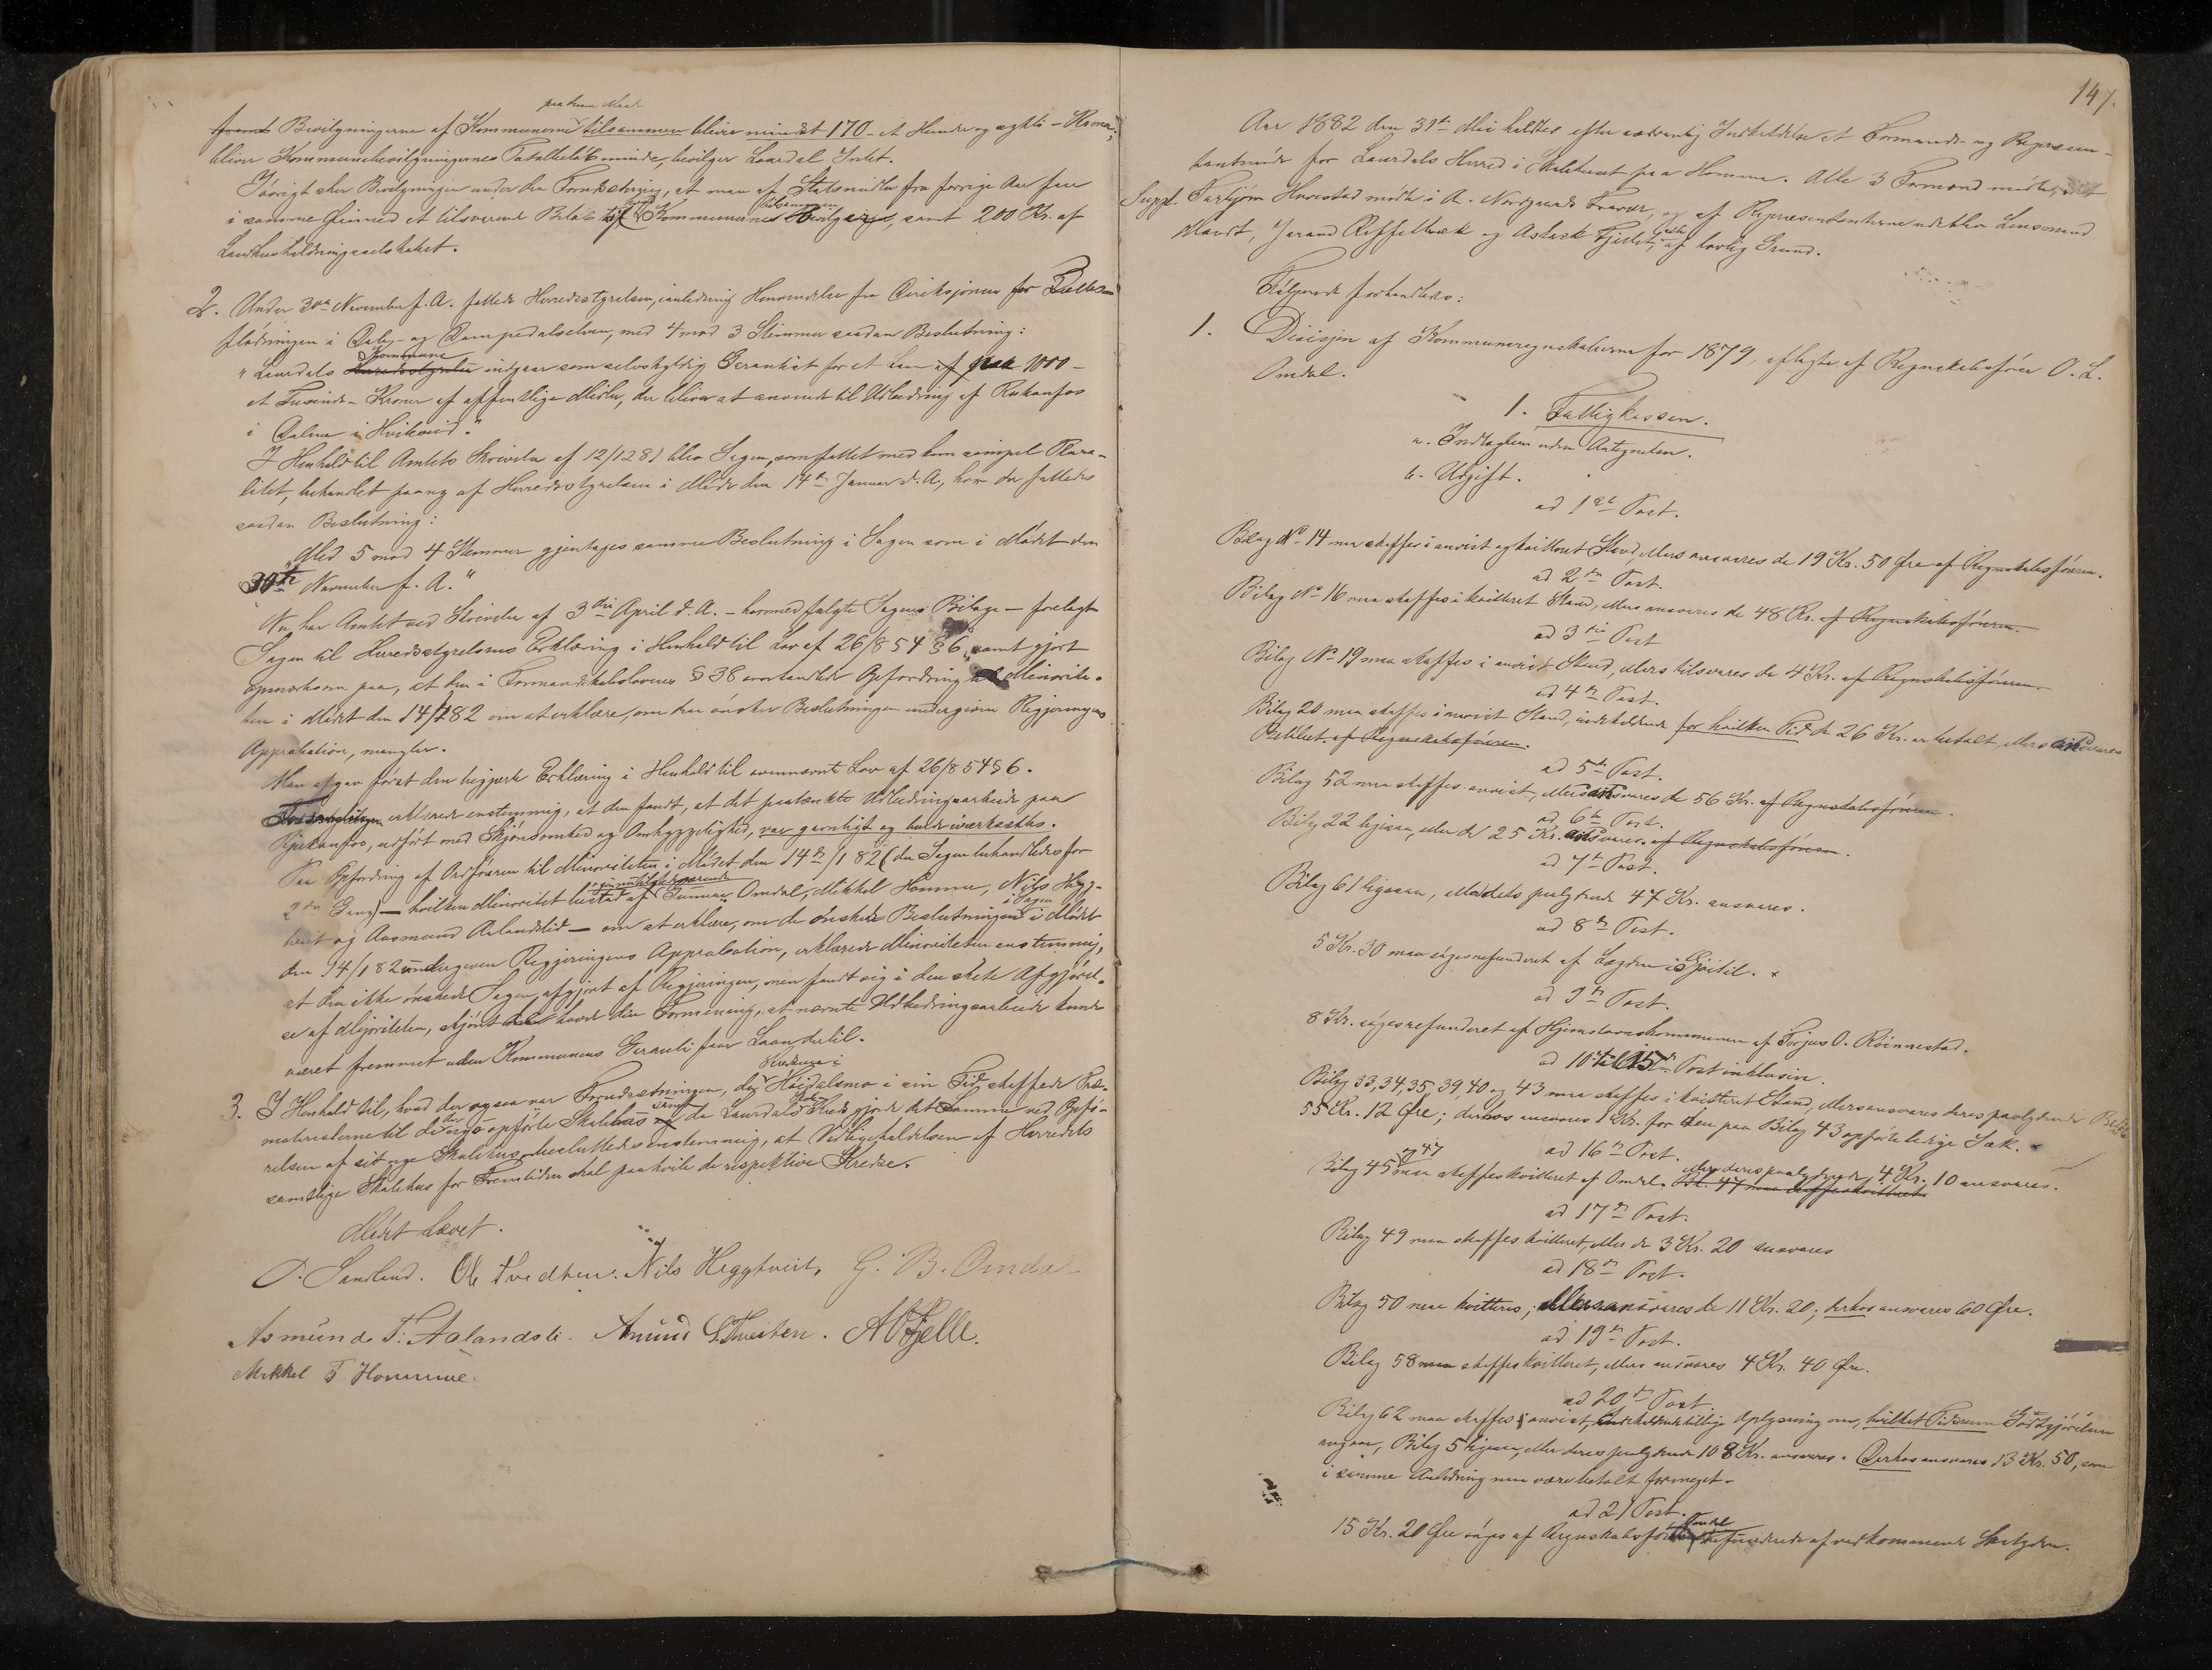 paa denne Maade
Bevilgningerne af Kommunerne tilsammen bliver mindst 170 - et Hundre og sytti - Kroner;
bliver Kommunebevilgningernes Totalbeløb mindre, bevilger Laurdal Intet.
Iøvrigt sker Bevilgningen under den Forudsætning, at man af Statsmidler fra forrige Aar faar
i samme Øiemed et tilsvarende Beløb Kommunernes tilsammen, samt 200 Kr. af
Landhusholdningsselskabet.
2. Under 30te November f. A. fattede Herredsstyrelsen, i anledning Henvendelse fra Direksjonen for Fælles-
flødningen i Dalen- og elven, med 4 mod 3 Stemmer saadan Beslutning:
"Laurdals Kommune indgaar som selvskyldig Garantist for et Laan paa 1000 -
et Tusinde - Kroner af offentlige Midler, der bliver at anvende til Udbedring af Rukanfos
i Dalen i Hvideseid."
I Henhold til Amtets Skrivelse af 12/12 81 blev Sagen, som fattet med kun simpel Plura-
litet, behandlet paany af Herredsstyrelsen i Møde den 14de Januar d. A., hvor der fattedes
saadan Beslutning:
"Med 5 mod 4 Stemmer gjentages samme Beslutning i Sagen som i Mødet den
30te November f. A."
Nu har Amtet ved Skrivelse af 3die April d. A. - hvormed fulgte Sagens Bilage - forelagt
Sagen til Herredsstyrelsens Erklæring i Henhold til Lov af 26/8 54 § 6, samt gjort
opmærksom paa, at den i Formandskabslovens § 38 omhandlede Opfordring til Minorite-
ten i Mødet den 14/1 82 om at erklære, om den ønsker Beslutningen undergiven Regjeringens
Approbation, mangler.
Man afgav først den begjærte Erklæring i Henhold til ovennævnte Lov af 26/8 54 § 6.
erklærede enstemmig, at den fandt, at det paatænkte Udbedringsarbeide paa
Rjukanfos, udført med Skjønsomhed og Omhyggelighed, var gavnligt og burde iværksættes.
Paa Opfordring af Ordføreren til Minoriteten i Mødet den 14de/1 82 (da Sagen behandledes for
2den Gang) - hvilken Minoritet bestod af Gunnar Omdal, Mikkel Homme, Nils Hegg-
tveit og Aasmund Aalandslid - om at erklære, om de ønskede Beslutningen i Sagen i Mødet
den 14/1 82 undergiven Regjeringens Approbation, erklærede Minoriteten enstemmig,
at den ikke ønskede Sagen afgjort af Regjeringen, men fandt sig i den skete Afgjørel-
se af Majoriteten, skjønt havde den Formening, at nævnte Udbedringsarbeide kunde
været fremmet uden Kommunens Garanti for Laan dertil.
3. I Henhold til, hvad der ogsaa var Forudsætningen, da Kredsene i Høidalsmo i sin Tid skaffede Træ-
materialerne til de der opførte Skolehuse samt da Laurdals Kreds gjorde det Samme ved Opfø-
relsen af sit nye Skolehus besluttedes enstemmig, at Vedligeholdelsen af Herredets
samtlige Skolehus for Fremtiden skal paahvile de respektive Kredse.
Mødet hævet.
O. Sandland. Ole Tvedten. Nils Heggtveit, G. B. Omdal
Asmund T. Aalandsli. Amund S. Tveiten. A Fjelle.
Mikkel T Homme.
147.
Aar 1882 den 31te Mai holdtes efter sædvanlig Indkaldelse et Formands- og Repræsen-
tantmøde for Laurdals Herred i Skolehuset paa Homme. Alle 3 Formænd mødte,
Suppl. Tarbjørn Haarestad mødte i A. Nordgaards Fravær, og af Repræsentanterne udeblev Lensmand
Mandt, Jarand Reffelbæk og Aslack Fjellet, af lovlig Grund.
Følgende forhandledes:
1. Decisjon af Kommuneregnskaberne for 1879, aflagte af Regnskabsfører O. L.
Omdal.
1. Fattigkassen.
a. Indtægten uden Antegnelser.
b. Udgift.
ad 1ste Post.
Bilag No 14 maa skaffes i anvist og kvitteret Stand, ellers ansvares de 19 Kr. 50 Øre af Regnskabsføreren.
ad 2den Post.
Bilag No 16 maa skaffes i kvitteret Stand, ellers ansvares de 48 Kr. af Regnskabsføreren.
ad 3die Post
Bilag No 19 maa skaffes i anvist Stand, ellers tilsvares de 4 Kr. af Regnskabsføreren.
ad 4de Post.
Bilag 20 maa skaffes i anvist Stand, indeholdende for hvilken Tid de 26 Kr. er betalt, ellers ansvares
Beløbet af Regnskabsføreren.
ad 5te Post.
Bilag 52 maa skaffes anvist, ellers ansvares de 56 Kr. af Regnskabsføreren.
ad 6te Post.
Bilag 22 ligesaa, eller de 25 Kr. ansvares af Regnskabsføreren.
ad 7de Post.
Bilag 61 ligesaa, eller dets paalydende 47 Kr. ansvares.
ad 8de Post.
5 Kr. 30 maa søges refunderet af Lægden i Gjøitil.
ad 9de Post.
8 Kr. søges refunderet af Hjemstavnskommunen af Torjus O. Rønnestad.
ad 10de til 15de Post inklusive.
Bilag 33, 34, 35, 39, 40 og 43 maa skaffes i kvitteret Stand, ellers ansvares deres paalydende Beløb
55 Kr. 12 Øre; derhos ansvares 1 Kr. for den paa Bilag 43 opførte ledige Sæk.
ad 16de Post.
Bilag 45 og 47 maa skaffes kvitteret af Omdal. Bil. 47 maa skaffes kvitteret eller deres paalydende 4 Kr. 10 ansvares.
ad 17de Post.
Bilag 49 maa skaffes kvitteret, eller de 3 Kr. 20 ansvares
ad 18de Post.
Bilag 50 maa kvitteres; ellers ansvares de 11 Kr. 20; derhos ansvares 60 Øre.
ad 19de Post.
Bilag 58 maa skaffes kvitteret, ellers ansvares 4 Kr. 40 Øre.
ad 20de Post.
Bilag 62 maa skaffes anvist, indeholdende tillige Oplysning om, hvilket Tidsrum Godtgjørelsen
angaar, Bilag 5 ligesaa, eller deres paalydende 108 Kr. ansvares. Derhos ansvares 13 Kr. 50, som
i samme Anledning maa være betalt formeget.
ad 21 Post.
15 Kr. 20 Øre søges af Regnskabsfører Omdal refunderede af vedkommende Skatydere.